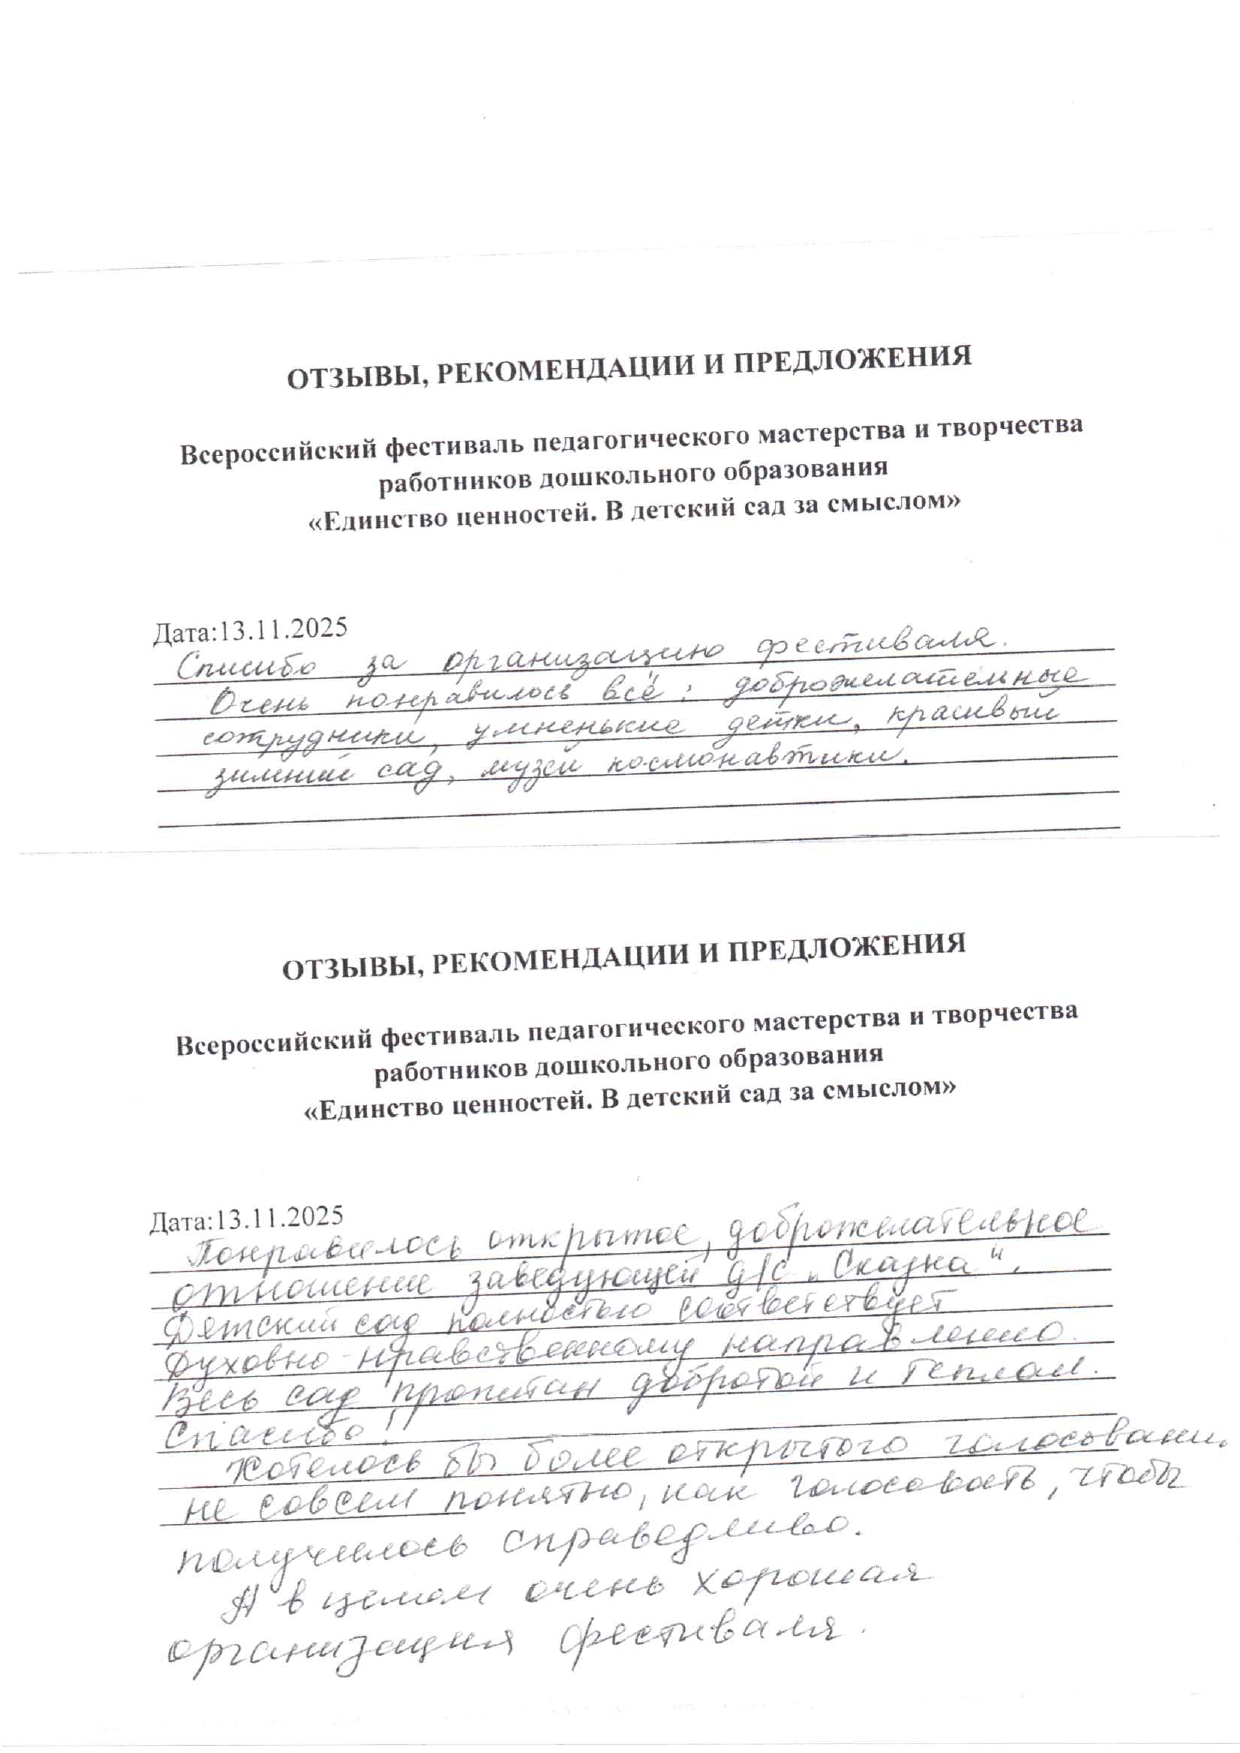 ОТЗЫВЫ, РЕКОМЕНДАЦИИ И ПРЕДЛОЖЕНИЯ
Всероссийский фестиваль педагогического мастерства и творчества
работников дошкольного образования
«Единство ценностей. В детский сад за смыслом»
Дата:13.11.2025
Спасибо за организацию фестиваля.
Очень понравилось всё: доброжелательные
сотрудники, умненькие детки, красивый
зимний сад, музей космонавтики.
ОТЗЫВЫ, РЕКОМЕНДАЦИИ И ПРЕДЛОЖЕНИЯ
Всероссийский фестиваль педагогического мастерства и творчества
работников дошкольного образования
«Единство ценностей. В детский сад за смыслом»
Дата:13.11.2025
Понравилось открытое, доброжелательное
отношение заведующей д/с „Сказка“.
Детский сад полностью соответствует
Духовно-нравственному направлению.
Весь сад пропитан добротой и теплом.
Спасибо!
Хотелось бы более открытого
не совсем понятно, как голосовать, чтобы
получилось справедливо.
А в целом очень хорошая
организация фестиваля.